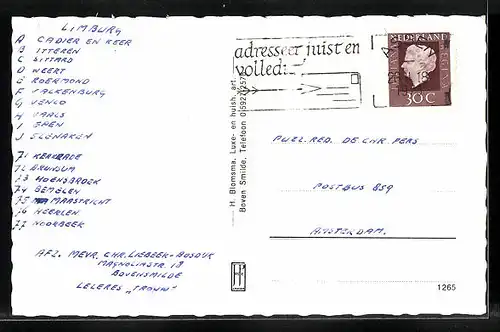 LIMBURG
A CADIER EN KEER
B ITTEREN
C SITTARD
D WEERT
E ROERMOND
F VALKENBURG
G VENLO
H VAALS
I
J SLENAKEN
71 KERKRADE
72 BRUNSUM
73 HOENSBROEK
74 BEMELEN
75 MAASTRICHT
76 HEERLEN
77 NOORBEEK
AFZ. MEVR. CHR. LIEBEEK-
MAGNOLINSTR. 18
BOVENSMILDE
LELERES „TROUW"
H. Blomsma. Luxe- en huish. art.
Boven Smilde. Telefoon 05921/257
H
adresseer juist en
volled
NEDERLAND
30C
PUZZ. RED. DE CHR. PERS
POSTBUS 859
AMSTERDAM.
1265